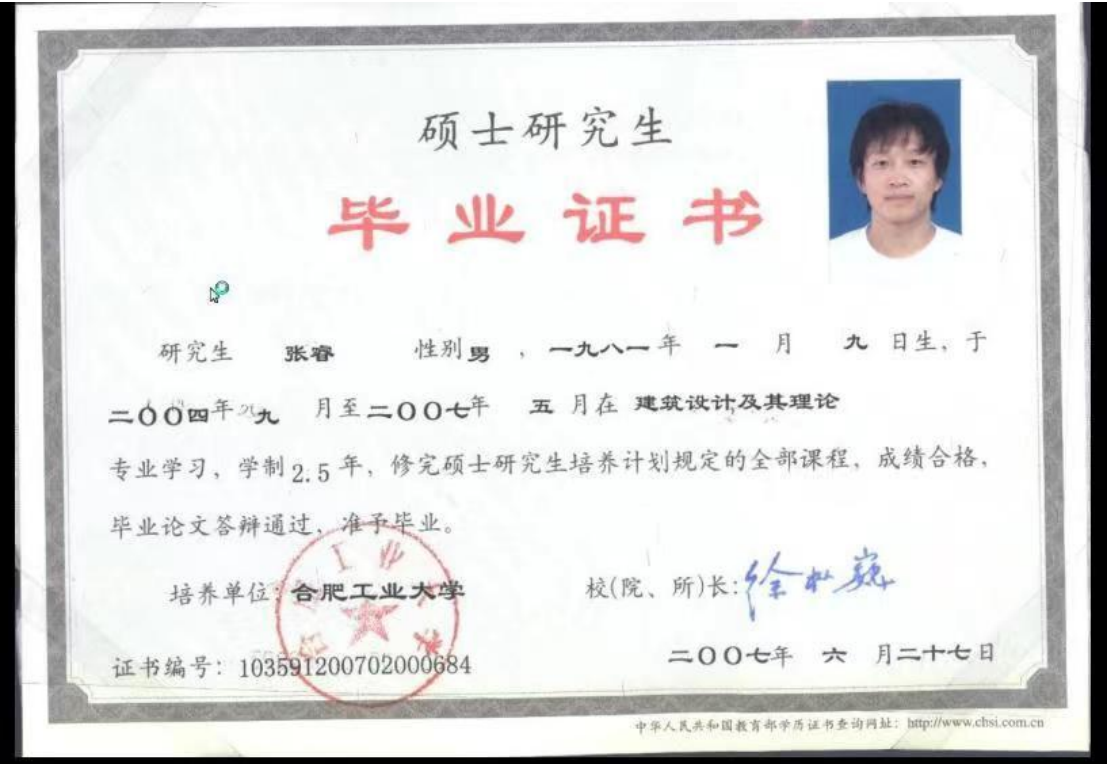 硕士研究生
毕业证书
研究生 张睿 性别男 ，一九八一年 一 月 九 日生，于
二〇〇四年 九 月至二〇〇七年 五 月在 建筑设计及其理论
专业学习，学制2.5年，修完硕士研究生培养计划规定的全部课程，成绩合格，
毕业论文答辩通过，准予毕业。
培养单位：合肥工业大学 校(院、所)长：徐枞巍
证书编号：103591200702000684 二〇〇七年 六 月二十七日
中华人民共和国教育部学历证书查询网址：http://www.chsi.com.cn